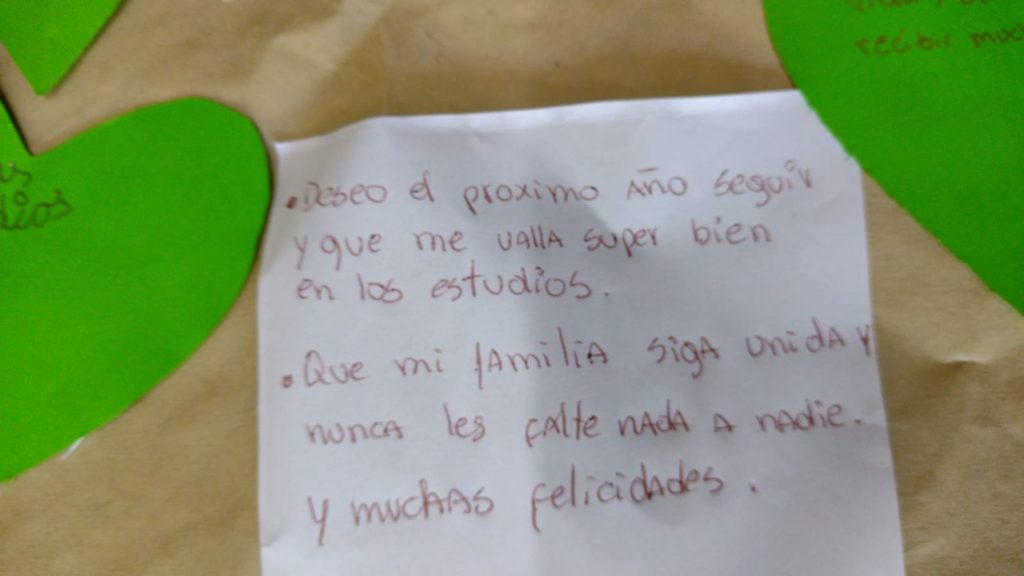 recibir
dios
• Deseo el proximo año seguir
y que me valla super bien
en los estudios.
• Que mi familia siga unida y
nunca les falte nada a nadie.
y muchas felicidades.